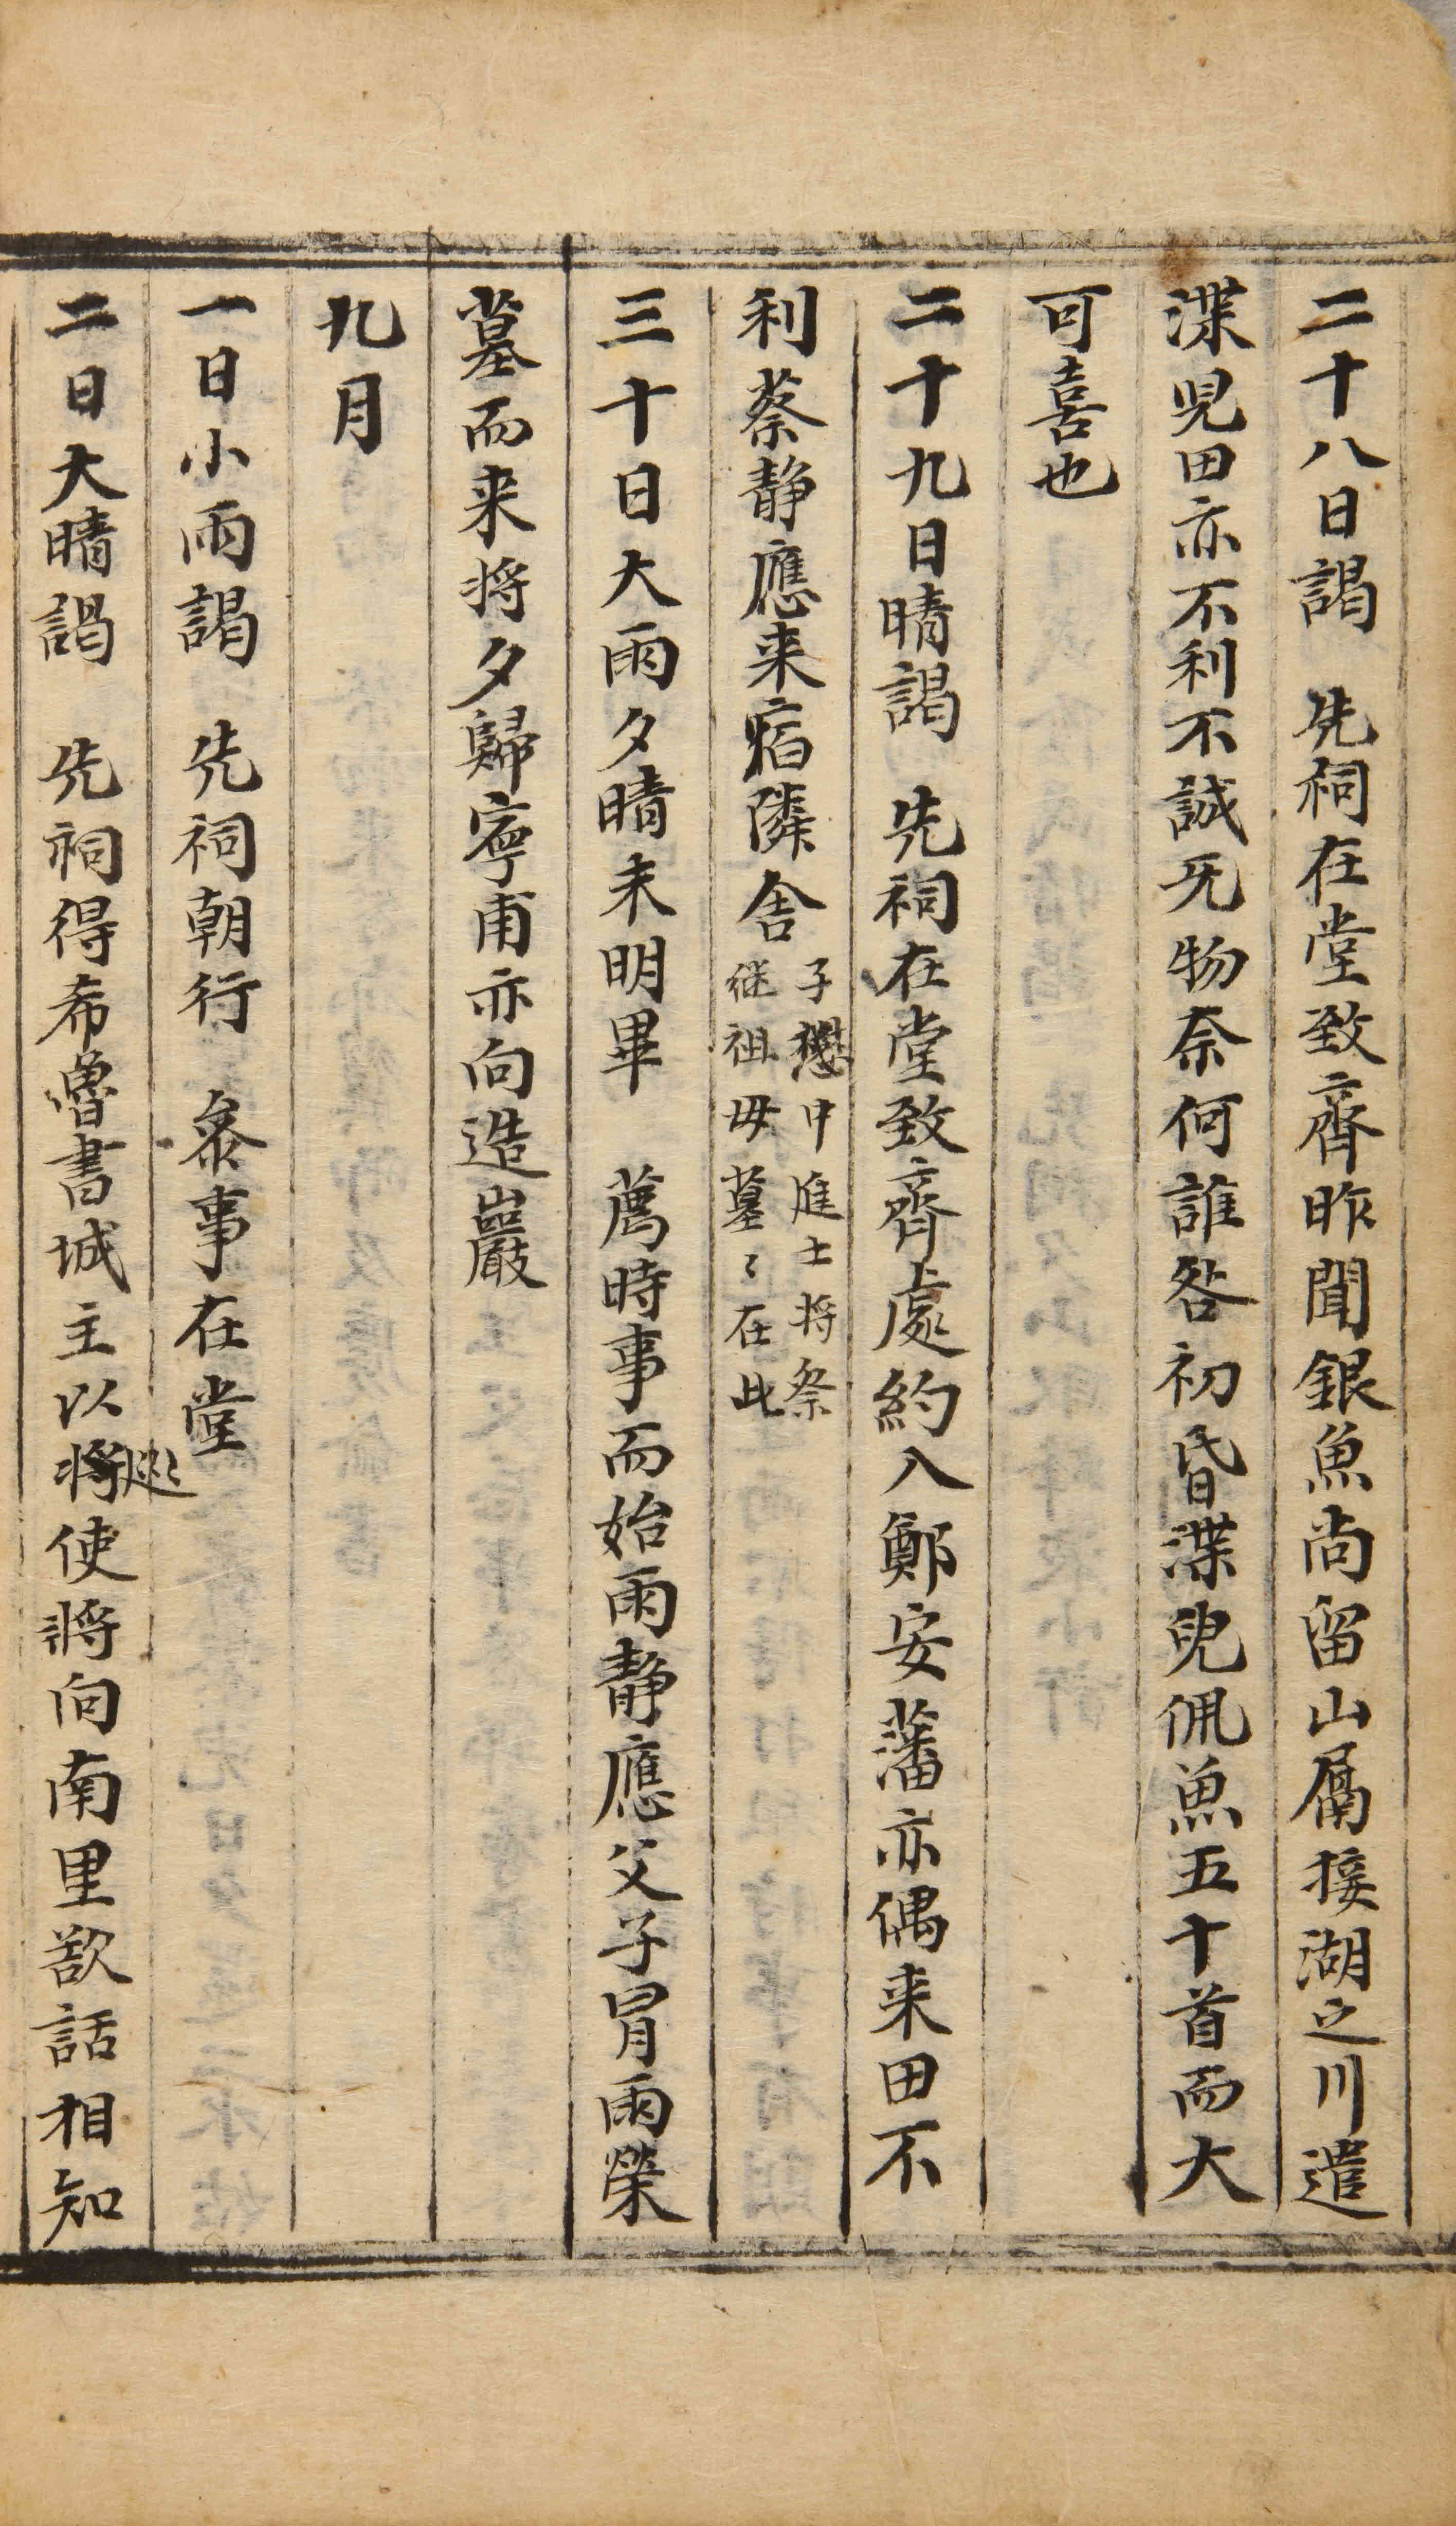 二十八日謁　先祠在堂致齊昨聞銀魚尚留山屬接湖之川遣
渫児田亦不利不誠旡物奈何誰咎初昏渫兒佩魚五十首而大
可喜也
二十九日晴謁　先祠在堂致齊處約入鄭安藩亦偶来田不
利蔡静應来宿隣舎子懋中進士将祭
継祖母墓〻在此
三十日大雨夕晴未明畢　薦時事而始雨静應父子冒雨榮
墓而来将夕歸寜甫亦向造巖
九月
一日小雨謁　先祠朝行　叅事在堂
二日大晴謁　先祠得希魯書城主以將巡使將向南里欲話相知